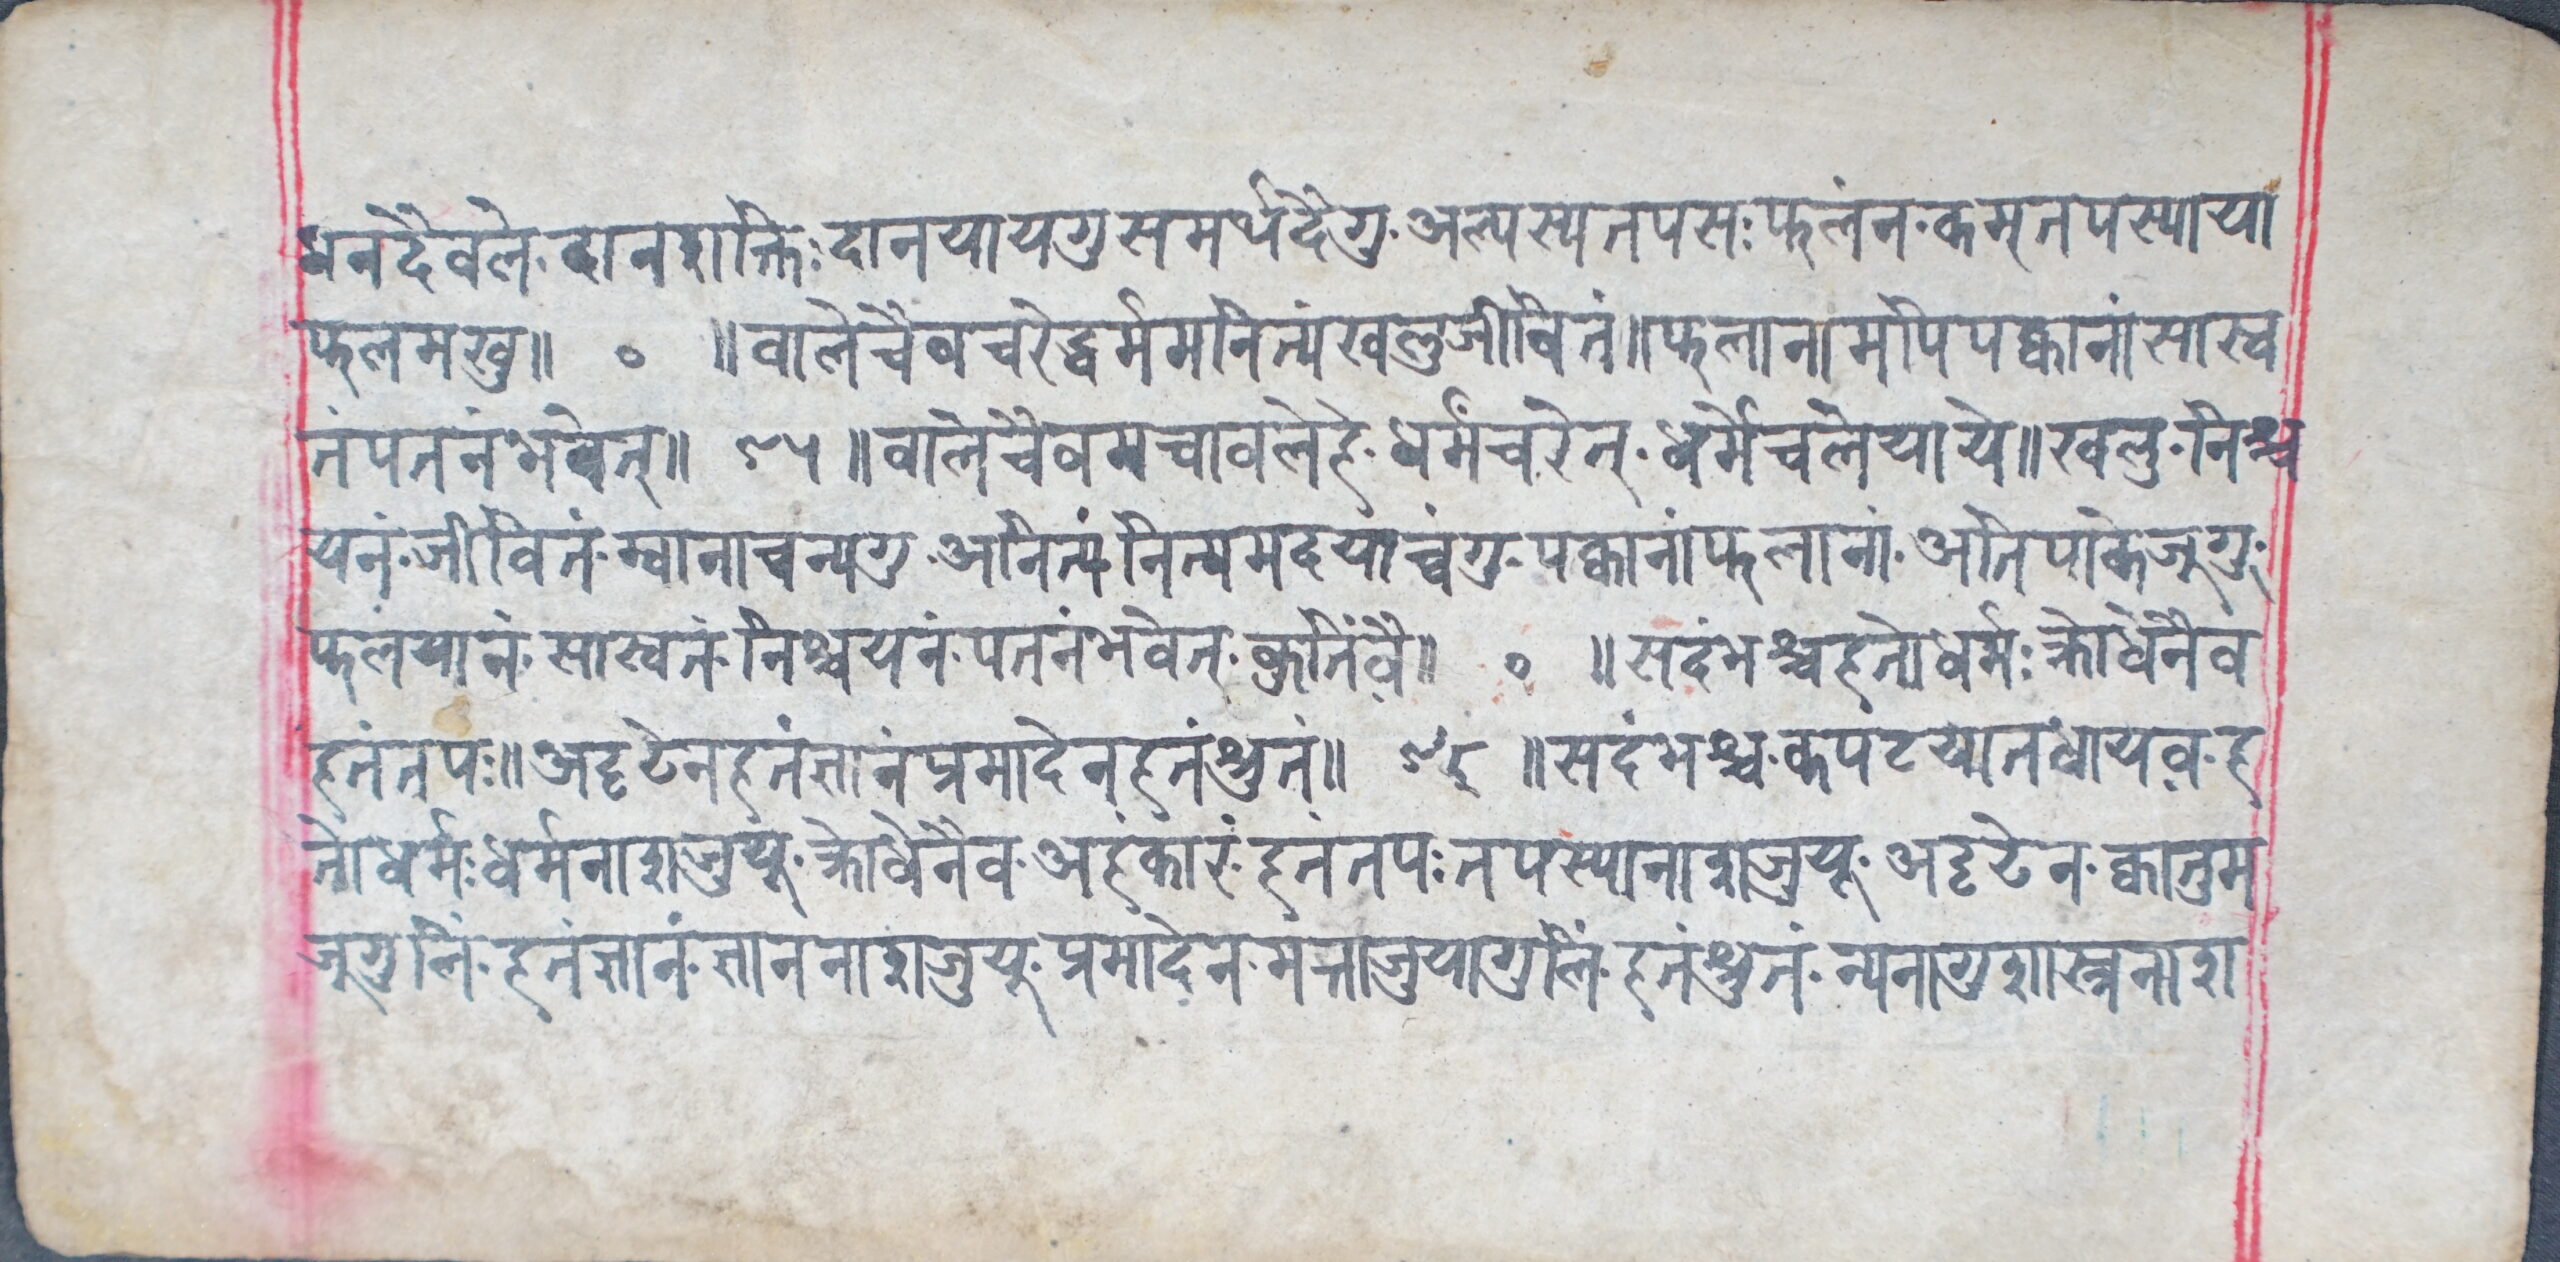 धनदैवले· दानशक्तिः दानयायगु समर्थदैगु· अल्पस्य तपसः फलंन· कम्‌तपस्याया
फलमखु॥ ० ॥ वाले चैव चरेद्धर्ममनित्यं खलु जीवितं॥ फलानामपि पक्वानां सास्व
तं पतनं भवेत्॥ ९५ ॥ वाले चैव मचावलेहे· धर्मं चरेत्· धर्मे चलेयाये॥ खलु· निश्च
यनं· जीवितं· म्वानाचन्यगु· अनित्यं नित्यमदयाच्वंगु· पक्वानां फलानां· अतिपाकेजूगु·
फलयानं· सास्वतं· निश्चयनं· पतनं भवेत्· कुतिंवै॥ ० ॥ सदंभश्च हतो धर्मः क्रोधेनैव
हतं तपः॥ अदृढेन हतं ज्ञानं प्रमादेन हतं श्रुतं॥ ९६ ॥ सदंभश्च· कपटयानधायव· ह
तो धर्मः धर्मनाशजुयू· क्रोधेनैव· अहंकारं· हतं तपः तपस्यानाशजुयू· अदृढेन· क्वातुम
जूगुलिं· हतं ज्ञानं· ज्ञाननाशजुयू· प्रमादेन· मत्ताजुयागुलिं· हतं श्रुतं· न्यनागु शास्त्रनाश